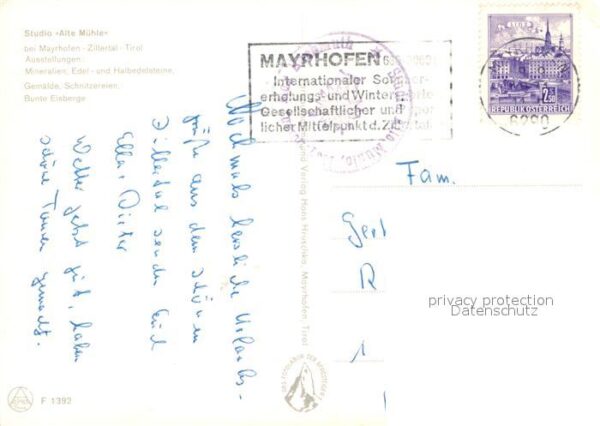 Studio »Alte Mühle«
bei Mayrhofen · Zillertal · Tirol
Ausstellungen:
Mineralien, Edel- und Halbedelsteine,
Gemälde, Schnitzereien,
Bunte Eisberge
MAYRHOFEN 630
Internationaler Sommer-
erholungs- und Wintersport
Gesellschaftlicher und spor
licher Mittelpunkt d. Zillertal
2.50
REPUBLIK ÖSTERREICH
6290
Nochmals herzliche Urlaubs-
grüße aus dem schönen
Zillertal senden Euch
Ella, Dieter
Wetter jetzt gut, haben
schöne Touren gemacht.
Verlag Hans Hruschka, Mayrhofen, Tirol
Fam.
Gert
R
1
privacy protection
Datenschutz
F 1392